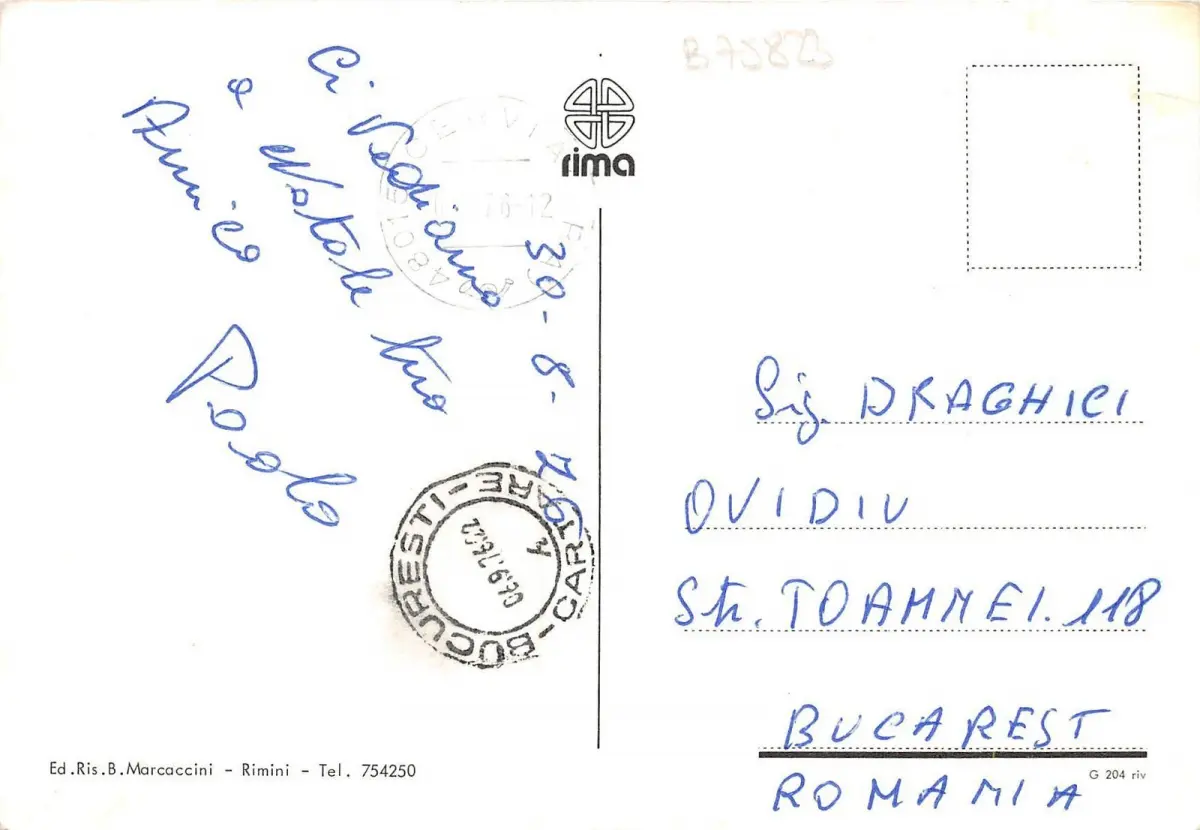 B75823
rima
CERVIA
(RA)
48015
76-12
30-8-76
Ci Vediamo
a Natale tuo
Amico
Paolo
BUCURESTI-CARTARE-
06.9.76.22
Sig. DRAGHICI
OVIDIU
Str. TOAMNEI. 118
BUCAREST
ROMANIA
Ed.Ris.B.Marcaccini - Rimini - Tel. 754250
G 204 riv